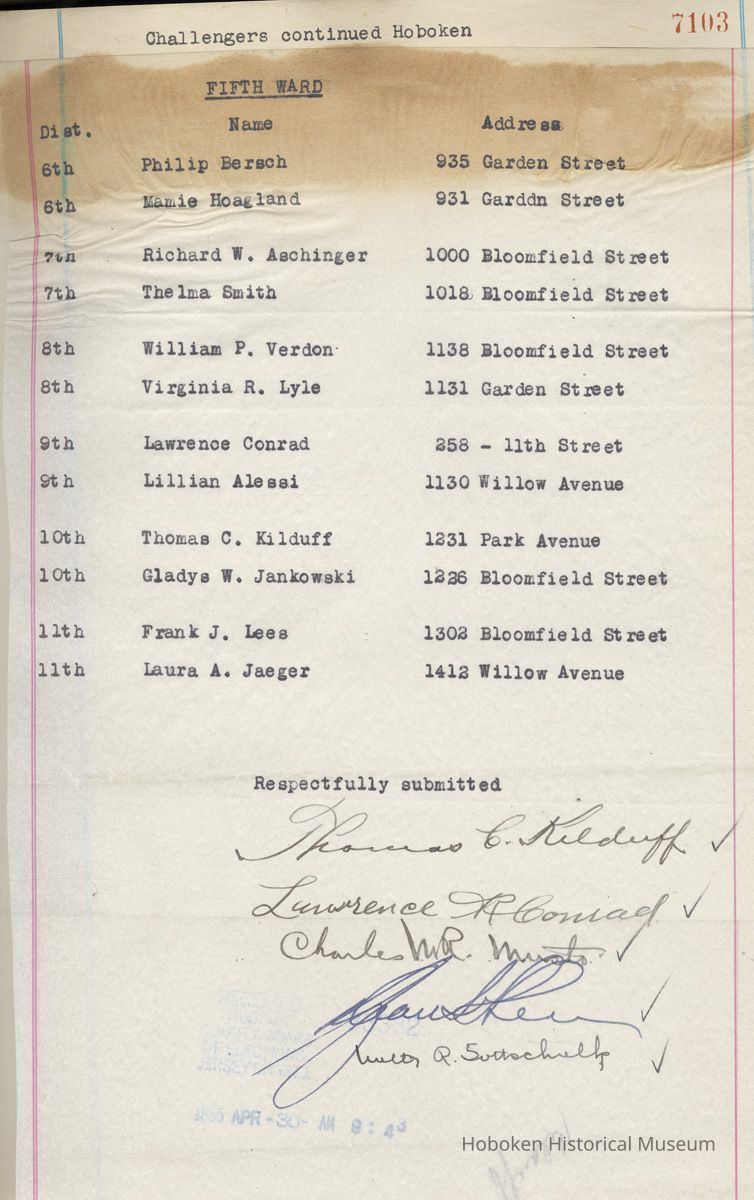 Challengers continued Hoboken 7103
FIFTH WARD
Dist. Name Address
6th Philip Bersch 935 Garden Street
6th Mamie Hoagland 931 Garddn Street
7th Richard W. Aschinger 1000 Bloomfield Street
7th Thelma Smith 1018 Bloomfield Street
8th William P. Verdon 1138 Bloomfield Street
8th Virginia R. Lyle 1131 Garden Street
9th Lawrence Conrad 258 - 11th Street
9th Lillian Alessi 1130 Willow Avenue
10th Thomas C. Kilduff 1231 Park Avenue
10th Gladys W. Jankowski 1226 Bloomfield Street
11th Frank J. Lees 1302 Bloomfield Street
11th Laura A. Jaeger 1412 Willow Avenue
Respectfully submitted
Thomas C. Kilduff
Lawrence Conrad
Charles
R.
OF ELECTIONS
JERSEY
APR -30- AM 9:43
Hoboken Historical Museum